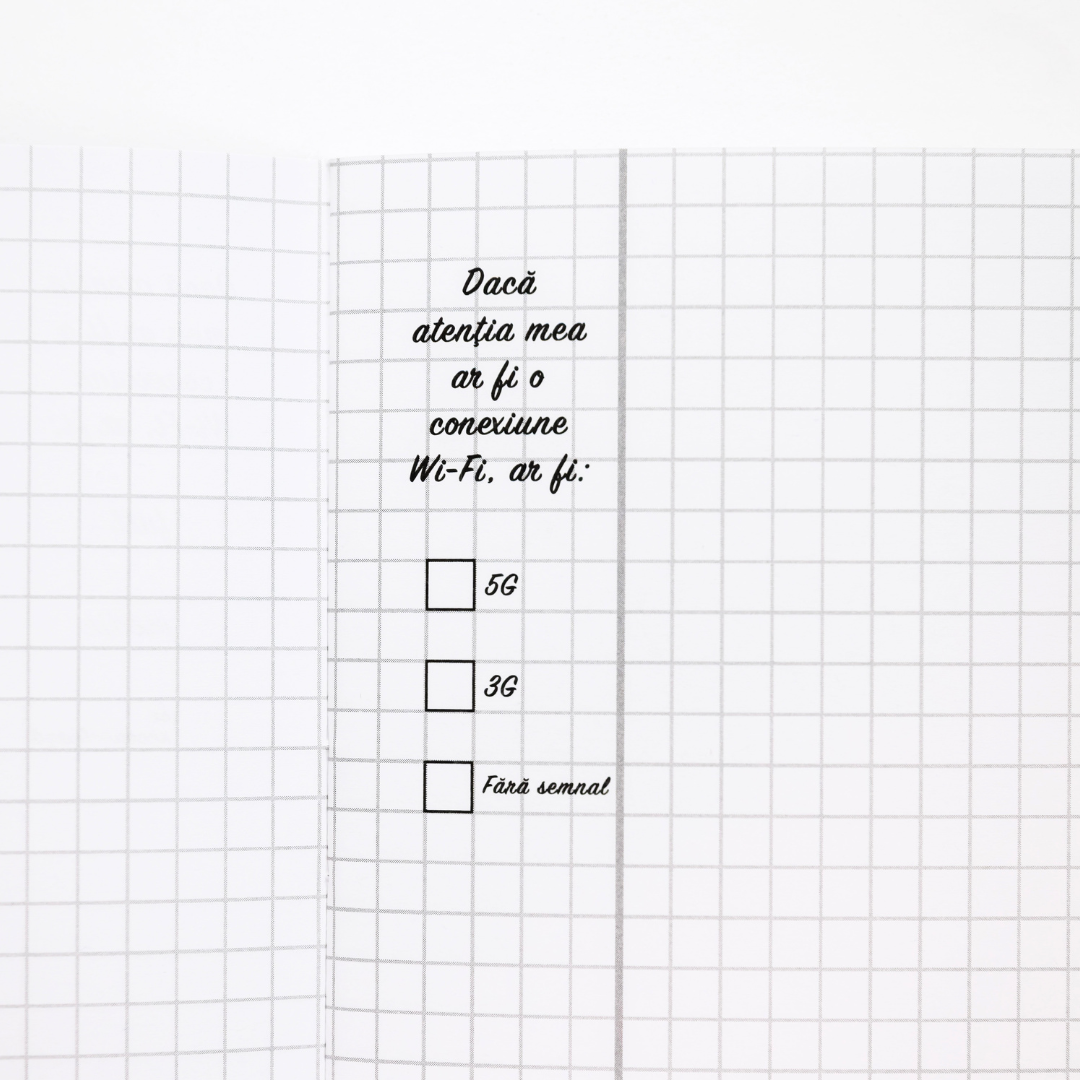 Dacă
atenția mea
ar fi o
conexiune
Wi-Fi, ar fi:
5G
3G
Fără semnal